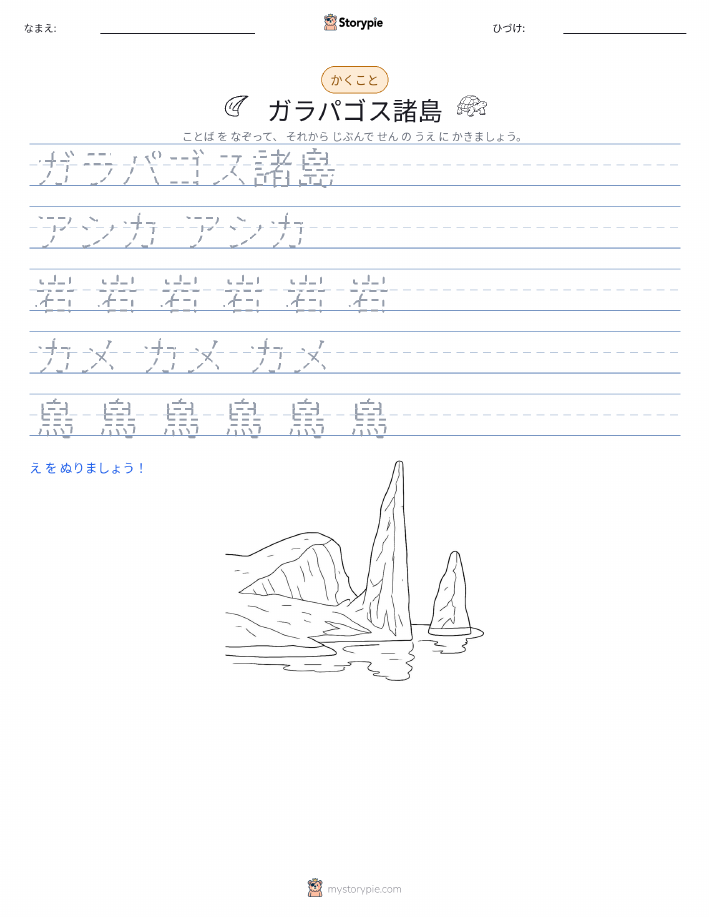 なまえ:
Storypie
ひづけ:
かくこと
ガラパゴス諸島
ことば を なぞって、 それから じぶんで せん の うえ に かきましょう。
ガラパゴス諸島
アシカ アシカ
岩 岩 岩 岩 岩 岩
カメ カメ カメ
鳥 鳥 鳥 鳥 鳥 鳥
え を ぬりましょう！
mystorypie.com